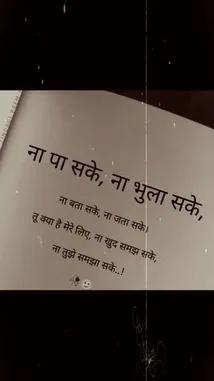 ना पा सके, ना भुला सके,
ना बता सके, ना जता सके।
तू क्या है मेरे लिए, ना खुद समझ सके,
ना तुझे समझा सके..!